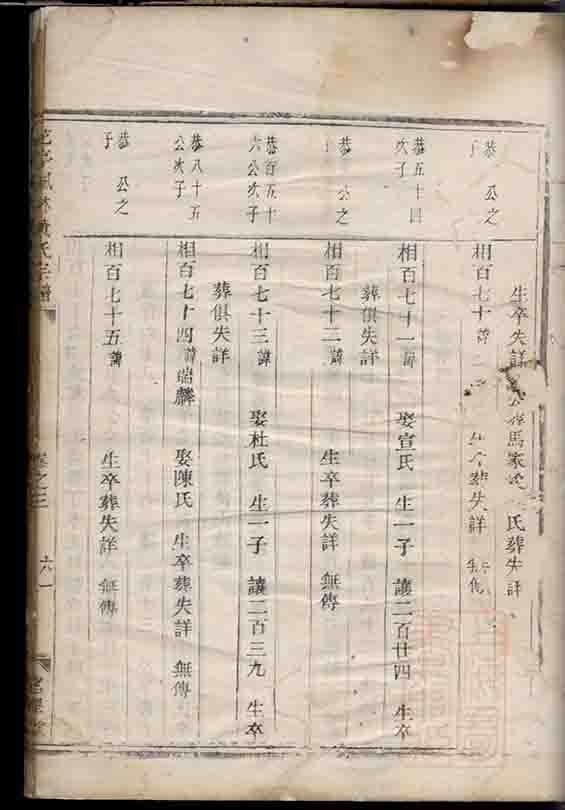 生卒失詳
馬家
氏葬失詳
恭 公之
相百七十 諱
葬失詳
恭五十四
次子
相百七十一諱 娶宣氏 生一子 讓二百廿四 生卒
葬俱失詳
恭 公之
相百七十二諱 生卒葬失詳 無傳
恭百五十
六公次子
相百七十三諱 娶杜氏 生一子 讓二百三九 生卒
葬俱失詳
恭八十五
公次子
相百七十四諱瑞麟 娶陳氏 生卒葬失詳 無傳
恭 公之
子
相百七十五諱 生卒葬失詳 無傳
氏宗譜
卷之三